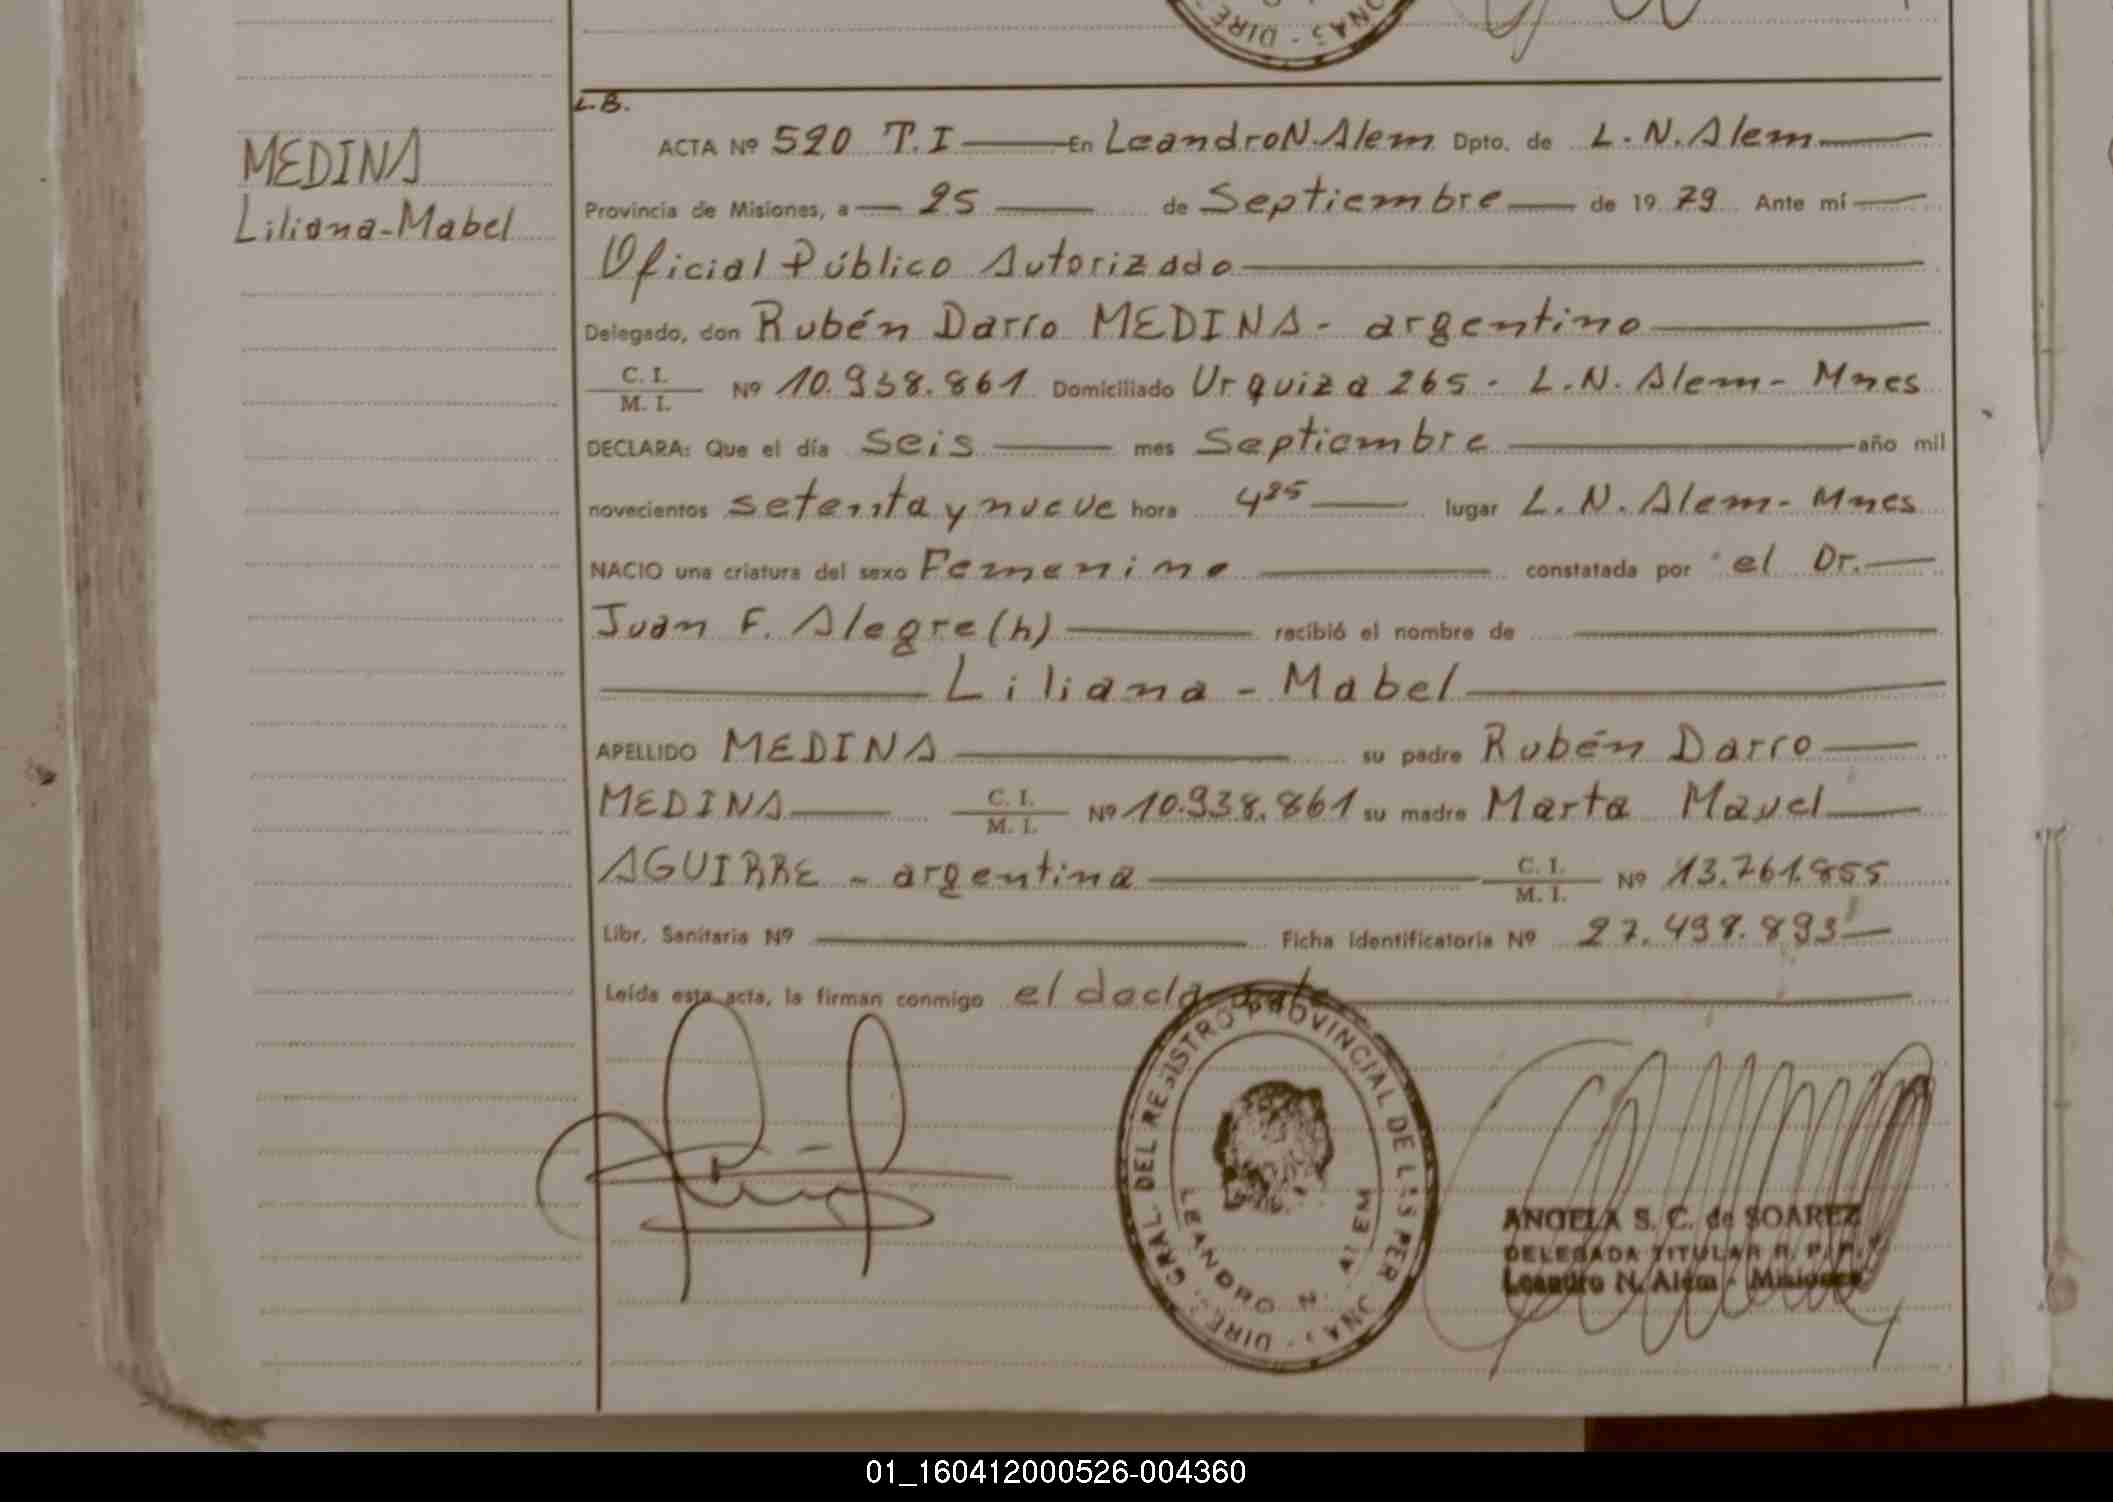 L.B.
MEDINA
Liliana-Mabel
ACTA Nº 520 T.I En Leandro N. Alem Dpto. de L. N. Alem
Provincia de Misiones, a 25 de Septiembre de 1979 Ante mí
Oficial Público Autorizado
Delegado, don Rubén Darío MEDINA - argentino
C. I. / M. I. Nº 10.938.861 Domiciliado Urquiza 265 - L.N. Alem - Mnes
DECLARA: Que el día seis mes Septiembre año mil
novecientos setenta y nueve hora 4 25 lugar L. N. Alem - Mnes
NACIO una criatura del sexo Femenino constatada por el Dr.
Juan F. Alegre (h) recibió el nombre de
Liliana - Mabel
APELLIDO MEDINA su padre Rubén Darío
MEDINA C. I. / M. I. Nº 10.938.861 su madre Marta Mavel
AGUIRRE - argentina C. I. / M. I. Nº 13.761.855
Libr. Sanitaria Nº Ficha Identificatoria Nº 27.498.893
Leída esta acta, la firman conmigo el declarante
DIRE GRAL. DEL REGISTRO PROVINCIAL DE LAS PERSONAS
LEANDRO N. ALEM
ANGELA S. C. de SOAREZ
DELEGADA TITULAR R. P. P.
Leandro N. Alem - Misiones
01_160412000526-004360